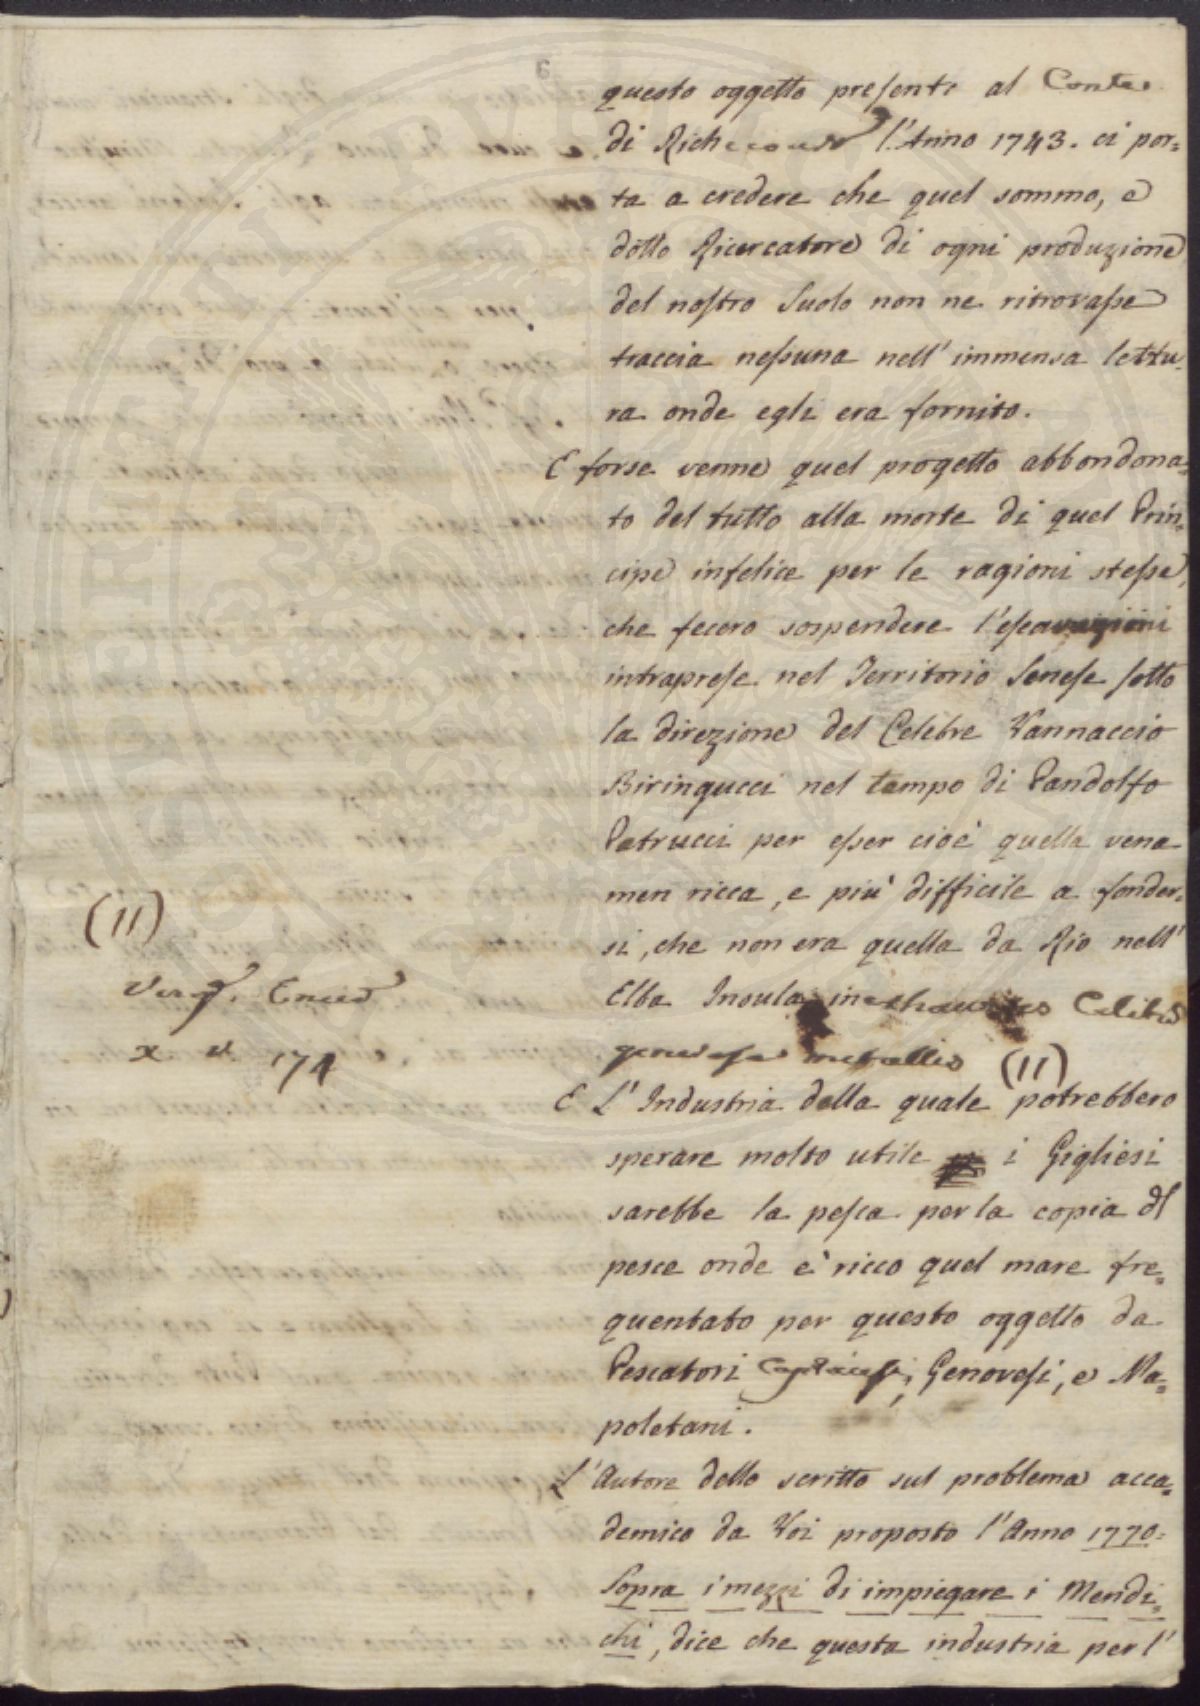 questo oggetto presenti al Conte
di Richecourt l'Anno 1743. ci por=
ta a credere che quel sommo, e
dotto Ricercatore di ogni produzione
del nostro Suolo non ne ritrovasse
traccia nessuna nell'immensa lettu=
ra onde egli era fornito.
E forse venne quel progetto abbondona=
to del tutto alla morte di quel Prin=
cipe infelice per le ragioni stesse,
che fecero sospendere l'escavazioni
intraprese nel Territorio Senese sotto
la direzione del Celebre Vannaccio
Biringucci nel tempo di Pandolfo
Petrucci per esser cioè quella vena
men ricca, e più difficile a fonder=
si, che non era quella da Rio nell'
Elba Insula inexhaustis Calibum
generosa metallis (11)
(11)
Virg. Eneid
x v 174
E L'Industria dalla quale potrebbero
sperare molto utile i Gigliesi
sarebbe la pesca per la copia del
pesce onde è ricco quel mare fre=
quentato per questo oggetto da
Pescatori Genovesi, e Na=
poletani.
L'Autore dello scritto sul problema acca=
demico da Voi proposto l'Anno 1770:
Sopra i mezzi di impiegare i Mendi=
chi, dice che questa industria per l'